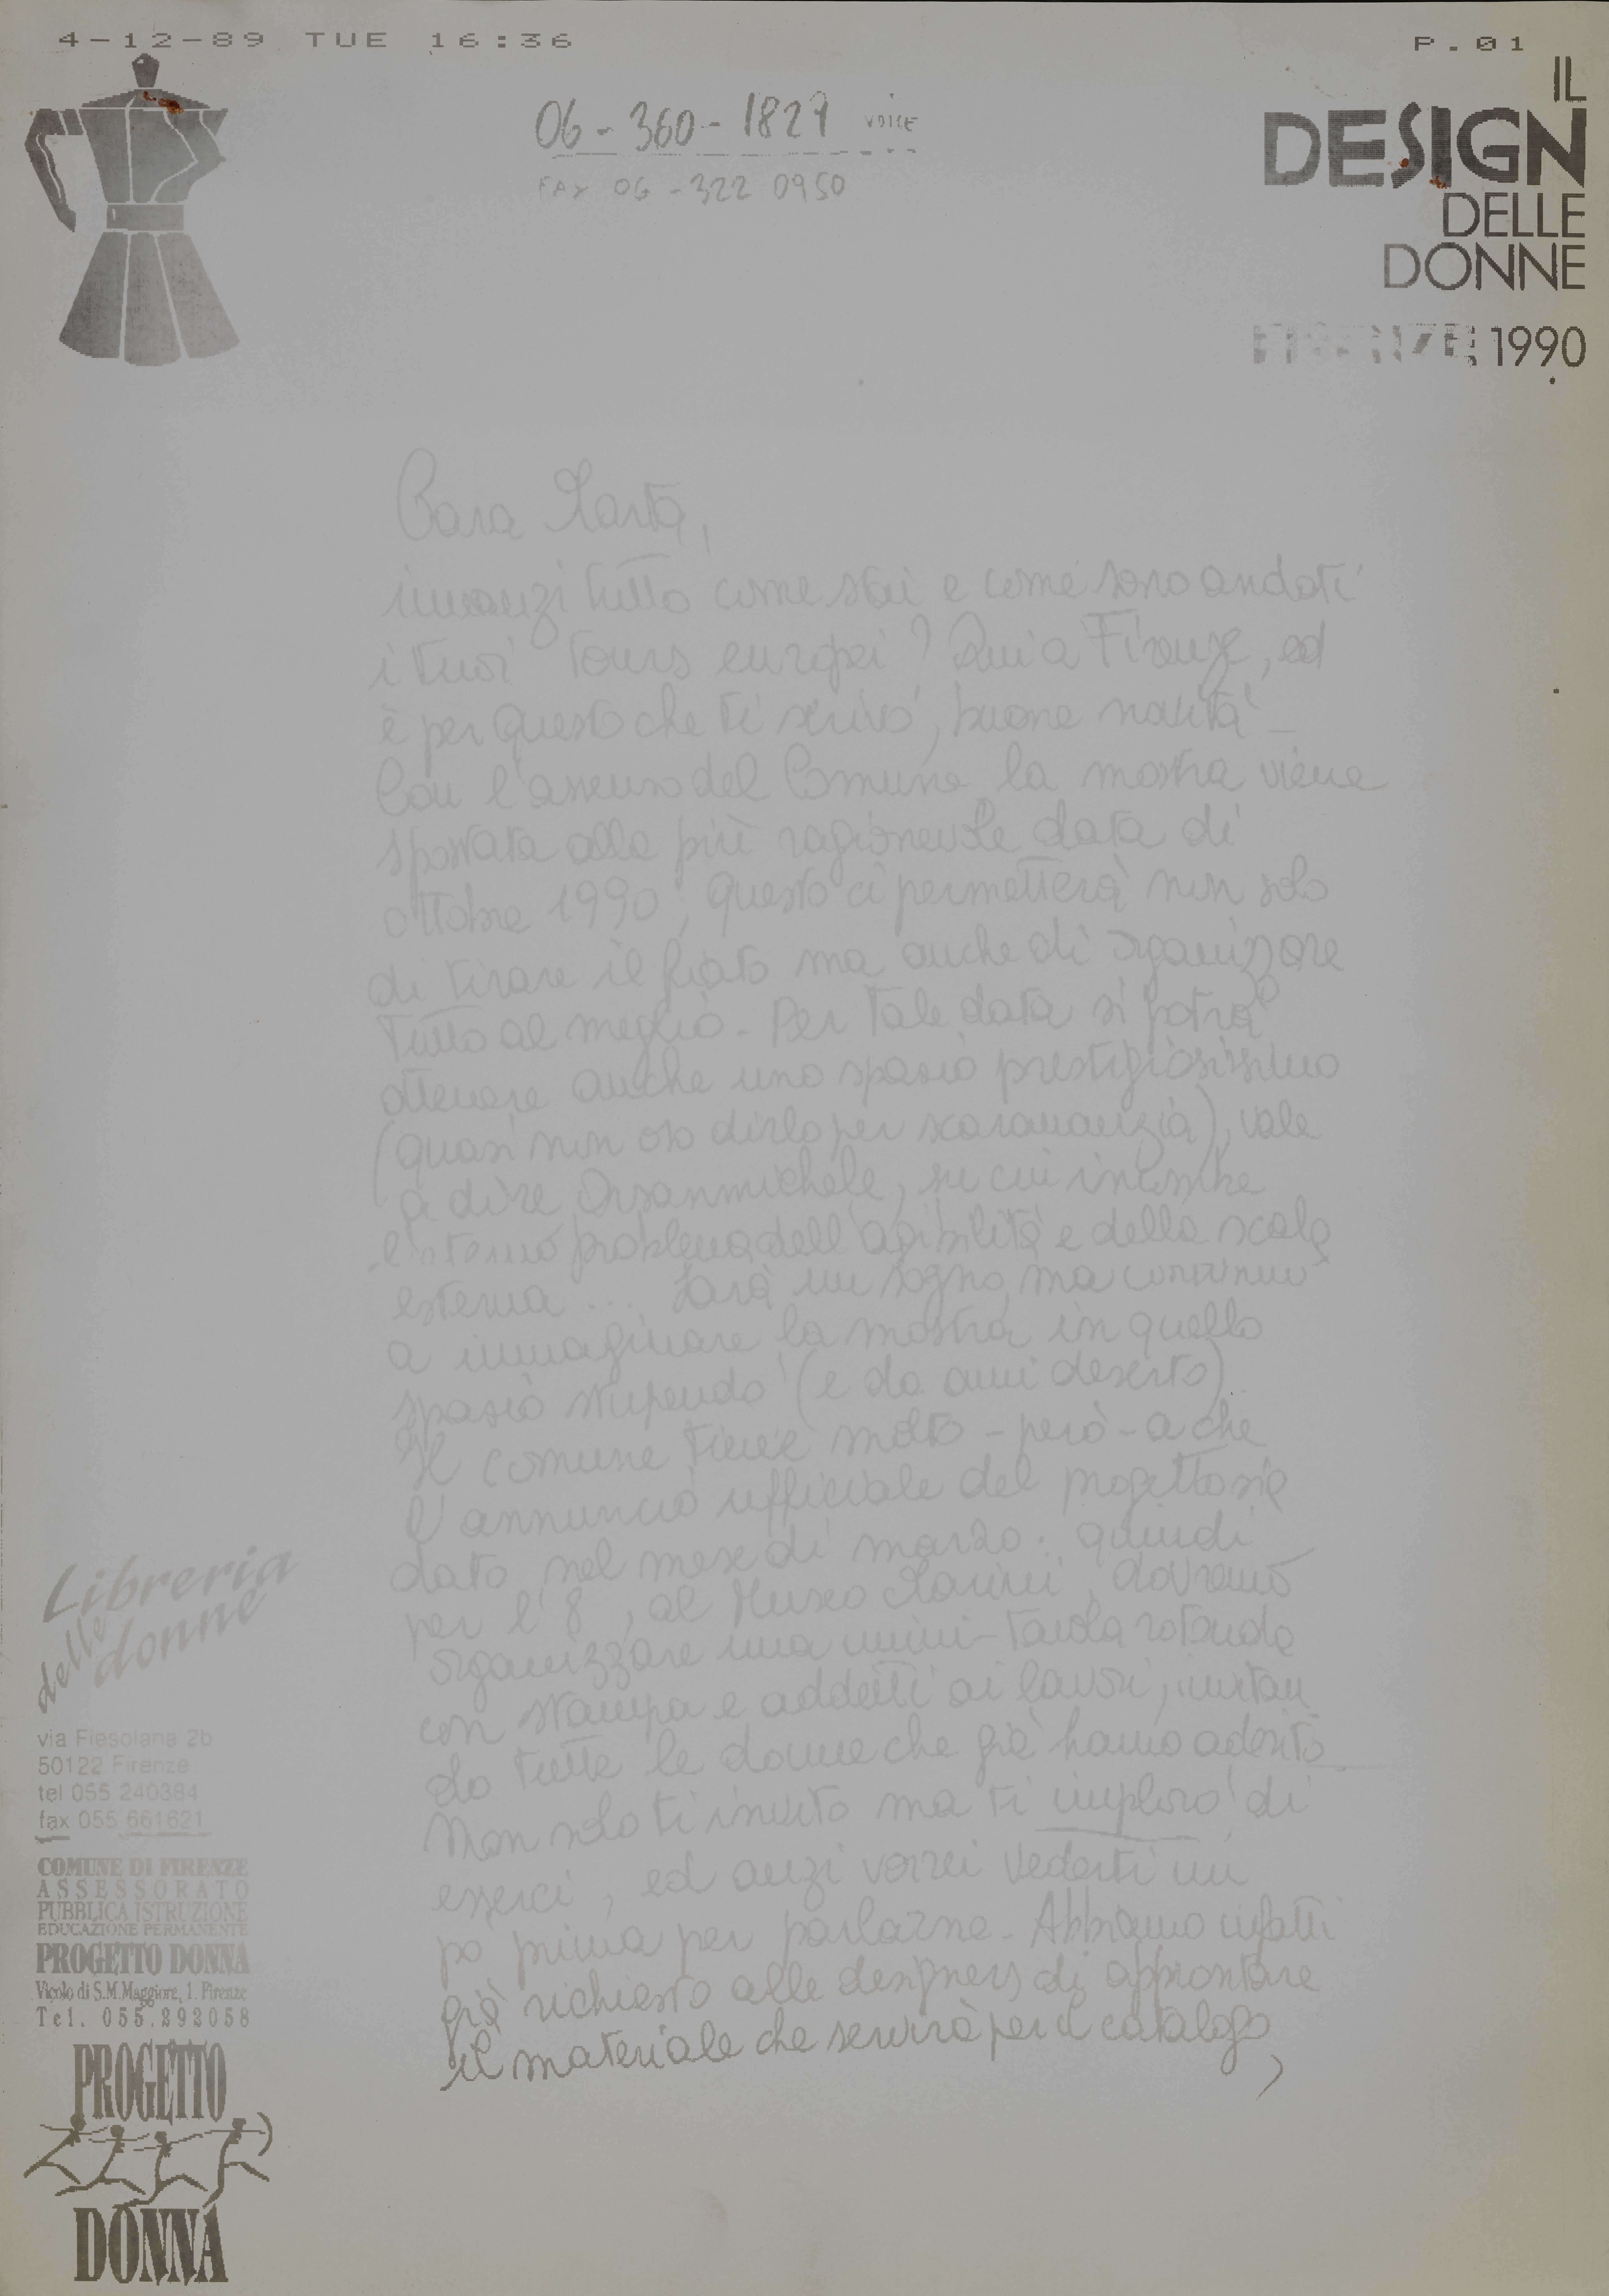 4-12-89 TUE 16:36 P.01
06-360-1829 VOICE
FAX 06-322 0950
IL
DESIGN
DELLE
DONNE
FIRENZE 1990
Cara Marta,
innanzi tutto come stai e come sono andati
i tuoi tours europei? Qui a Firenze, ed
è per questo che ti scrivo, buone novità -
Con l'assenso del Comune la mostra viene
spostata alla più ragionevole data di
ottobre 1990; questo ci permetterà non solo
di tirare il fiato ma anche di organizzare
tutto al meglio. Per tale data si potrà
ottenere anche uno spazio prestigiosissimo
(quasi non oso dirlo per scaramanzia), vale
a dire Orsanmichele, su cui incombe
l'eterno problema dell'agibilità e della scala
esterna ... Sarà un sogno, ma continuo
a immaginare la mostra in quello
spazio stupendo (e da anni deserto)
Il comune tiene molto - però - a che
l'annuncio ufficiale del progetto sia
dato nel mese di marzo: quindi
per l'8, al Museo Marini, dovremo
organizzare una mini-tavola rotonda
con stampa e addetti ai lavori, invitan
do tutte le donne che già hanno aderito
Non solo ti invito ma ti imploro di
esserci, ed anzi vorrei vederti un
po prima per parlarne. Abbiamo infatti
già richiesto alle designers di approntare
il materiale che servirà per il catalogo,
Libreria
delle donne
via Fiesolana 2b
50122 Firenze
tel 055 240384
fax 055 661621
COMUNE DI FIRENZE
ASSESSORATO
PUBBLICA ISTRUZIONE
EDUCAZIONE PERMANENTE
PROGETTO DONNA
Vicolo di S.M.Maggiore, 1. Firenze
Tel. 055.292058
PROGETTO
DONNA